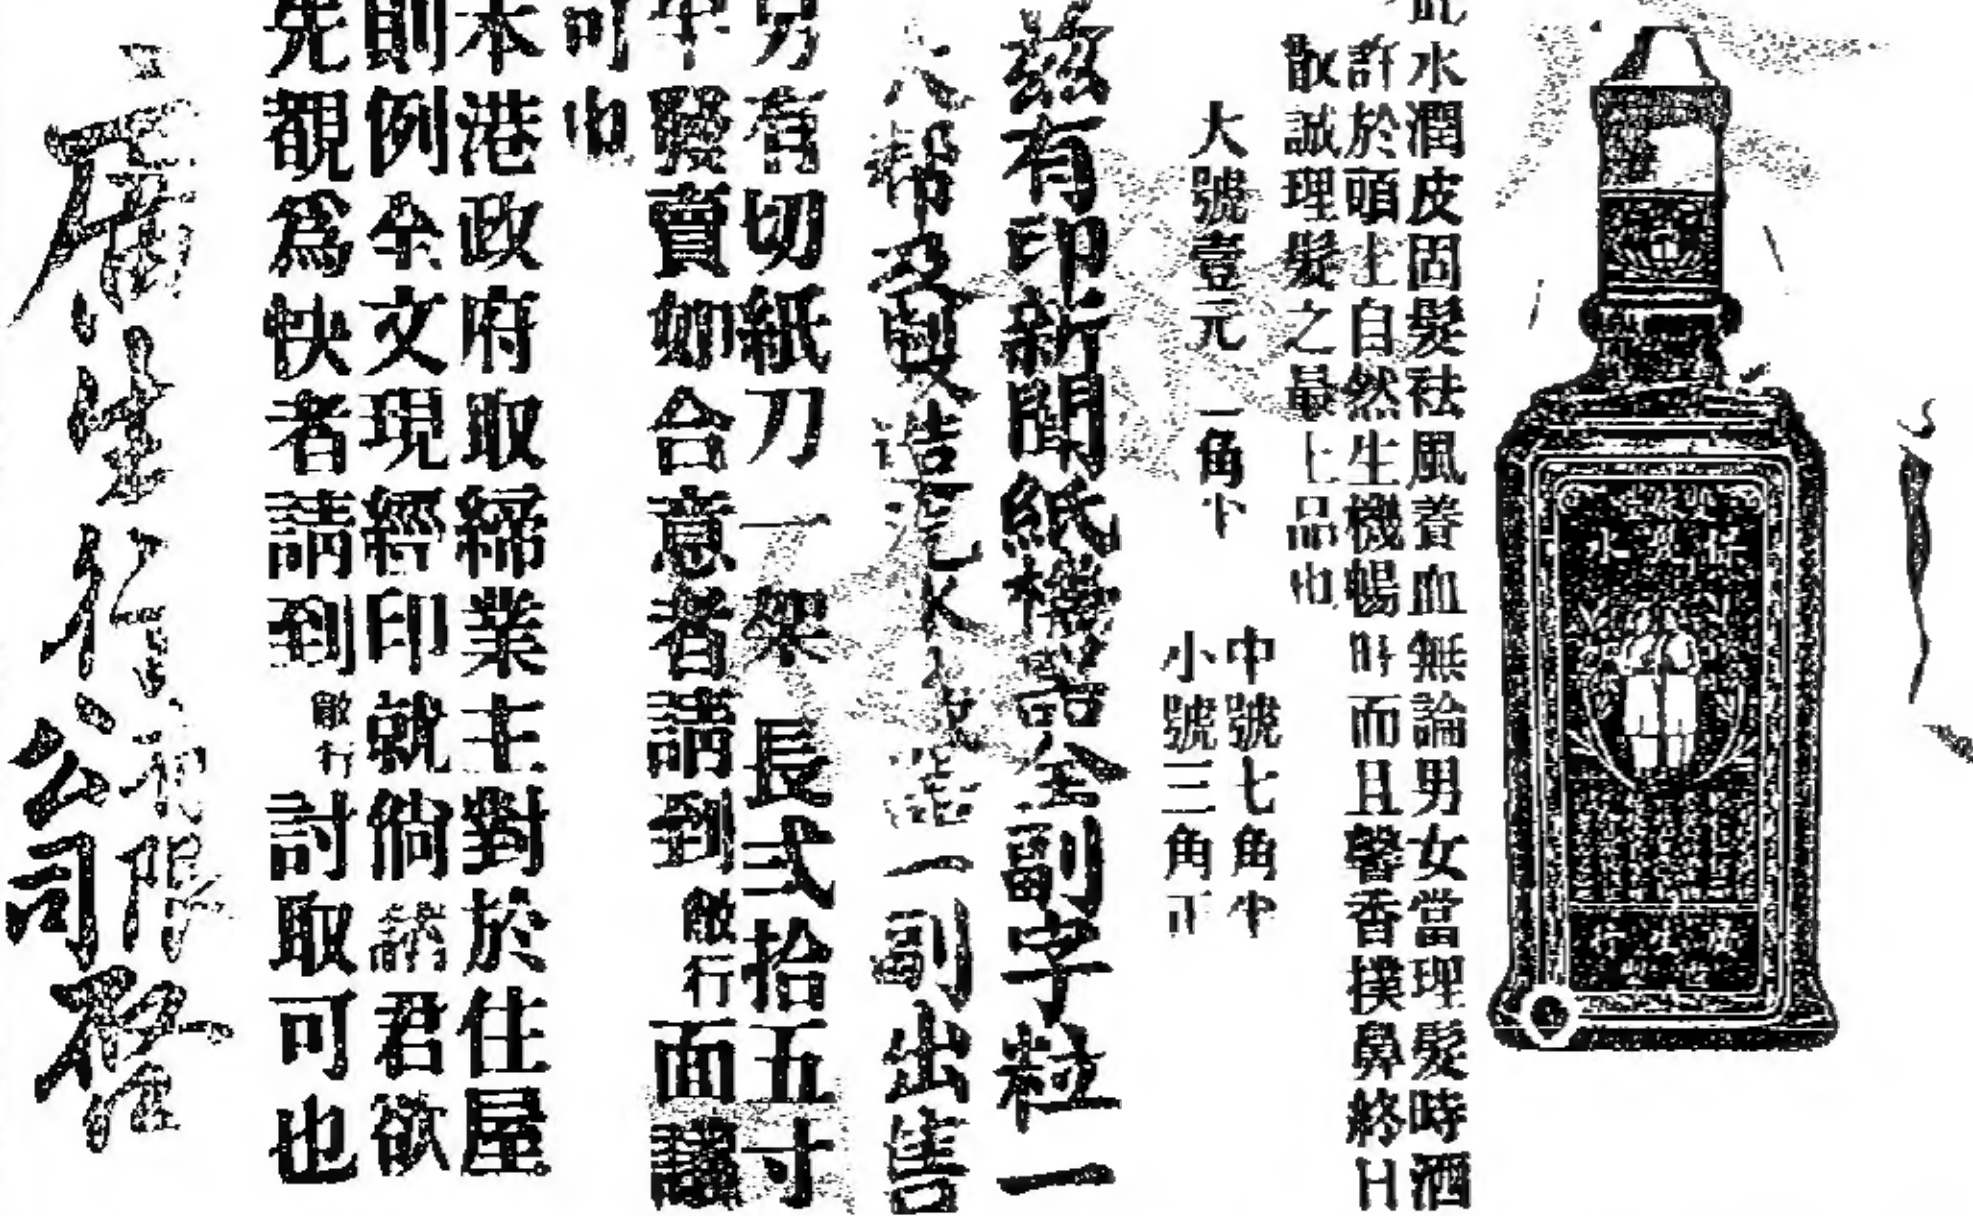 水潤皮固髮祛風養血無論男女當理髮時酒
許於頭上自然生機暢時而且馨香撲鼻終日
散誠理髮之最上品也
大號壹元一角半
中號七角半
小號三角正
茲有印新聞紙機器全副字粒一
大幫及製造汽水機器一副出售
另有切紙刀一架長弍拾五寸
平發賣如合意者請到敝行面議
可也
本港政府取締業主對於住屋
則例全文現經印就倘諸君欲
先覩爲快者請到敝行討取可也
廣生行有限公司啓